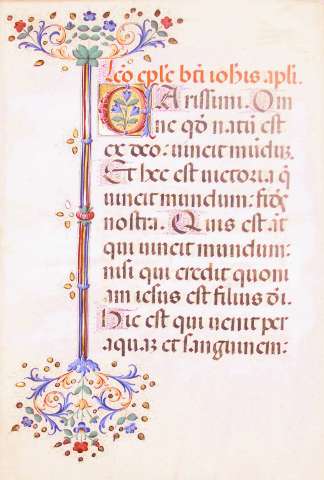 Lc̄o ep̄lē bt̄i ioh̄is ap̄li.
CArissimi. Om
ne qd̄ natū est
ex deo: uincit mūdūʒ.
Et hec est uictoria q̄
uincit mundum: fideˢ
nostra. Quis est āt
qui uincit mundum:
nisi qui credit quoni
am iesus est filius dī.
Hic est qui uenit per
aquaʒ et sanguinem: